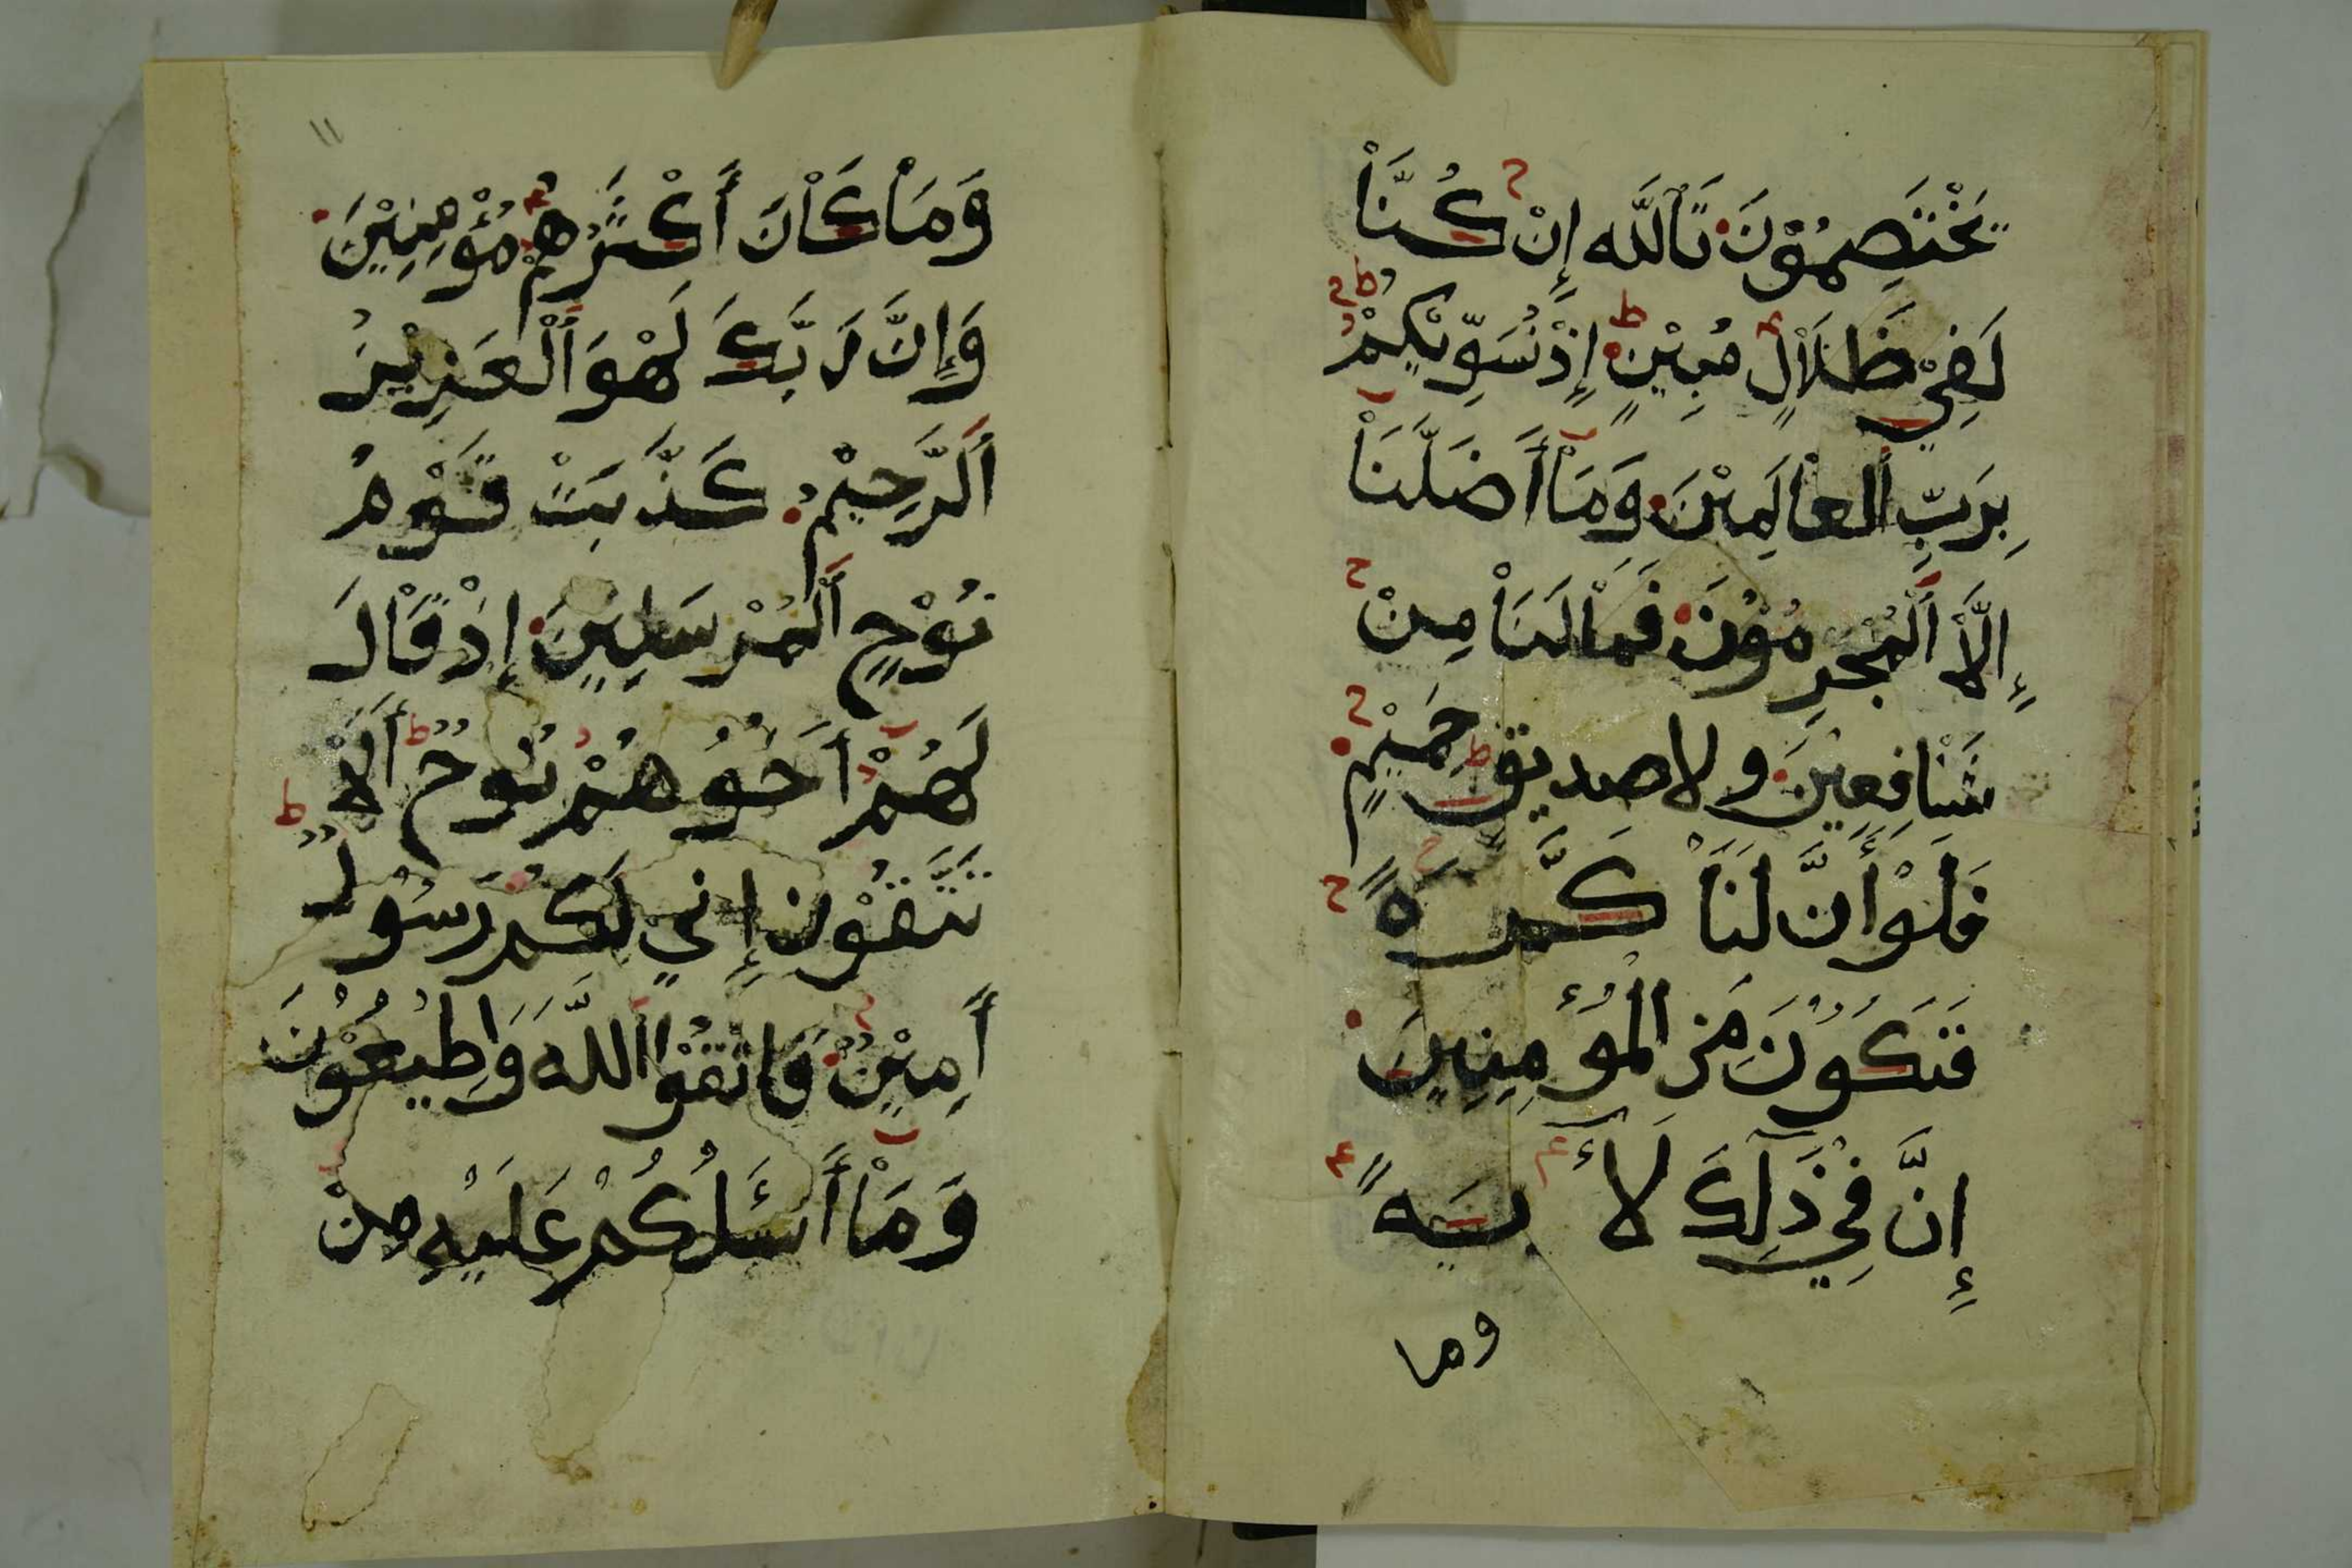 يَخْتَصِمُوْنَ تَاَللَّه إِنْ كُنَّاْ
لَفِيْ ظَلَاْلٍ مُبِيْنٍ إِذْ نُسَوِّيْكُمْ
بِرَبِّ اَلْعاْلَمِيْنَ وَمَاْ أَضَلَّنَاْ
إِلَّاْ اَلْمُجرِمُوْنَ فَمْاْلَنَاْ مِنْ
شَاْفِعِيْنَ ولا صديق حَمِيْمٍ
فَلَوْ أَنَّ لَنَاْ كَرَّةً
فَنَكَوُنَ مِنَ الْمُؤْمِنِينَ
إِنَّ فِيْ ذَلِكَ لَأَيَةً
وما
١١
وَمَاْ كَاْنَ أَكْثَرُهُمْ مُؤْمِنِيْنَ
وَإِنَّ رَبَّكَ لَهْوَ اَلْعَزِيْزُ
اَلرَّحِيْمُ كَذَّبَتْ قَوْمُ
نُوْحٍ اَلْمُرْسَلِيْنَ إِذْ قَاْلَ
لَهُمْ أَخُوْهُمْ نُوْحٌ أَلَاْ
تَتَّقُوْن إِنيْ لَكُمْ رَسُوْلٌ
أَمِيْنٌ فَاتْقُوْا اَللَّهَ وَاطِيْعُوْنَ
وَمَاْ أَسْئَلُكُمْ عَلَيْهِ مِنْ